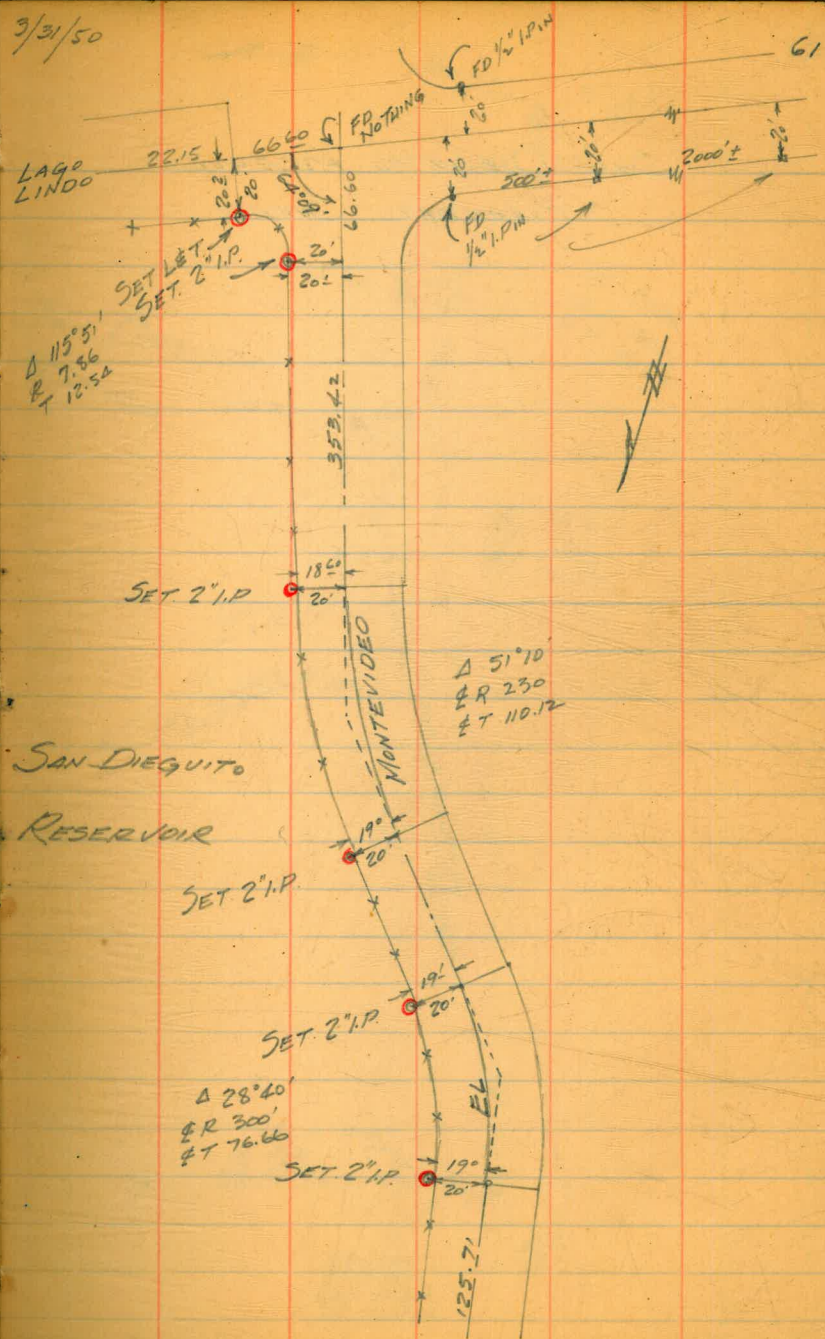 3/31/50
61
FD 1/2" I.PIN
FD.
NOTHING
20'
LAGO
LINDO
22.15
66.60
20'
20'
20'
500'±
2000'±
20±
20'
66.60
FD
1/2" I.PIN
SET L&T.
SET. 2" I.P.
20'
20±
Δ 115°51'
R 7.86
T 12.54
353.42
SET. 2" I.P
18.60
20'
MONTEVIDEO
Δ 51°10'
℄ R 230
℄ T 110.12
SAN DIEGUITO
RESERVOIR
19°
20'
SET 2" I.P.
19.1
20'
SET. 2" I.P.
Δ 28°40'
℄ R 300'
℄ T 76.66
EL
SET. 2" I.P.
19°
20'
125.71